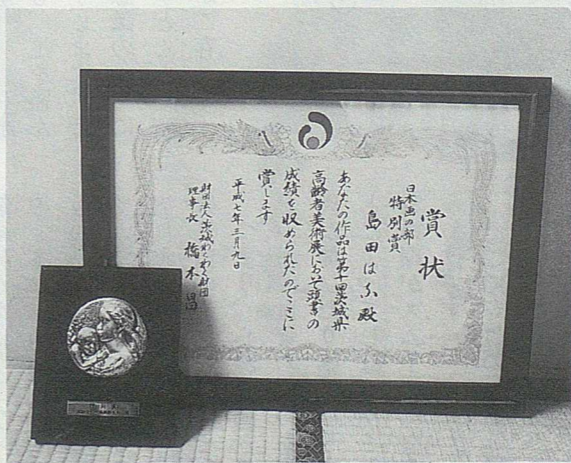 賞状
日本画の部
特別賞
島田はな殿
あなたの作品は第十回茨城県
高齢者美術展において頭書の
成績を収められたのでここに
賞します
平成七年三月九日
財団法人茨城わくわく財団
理事長 橋本昌